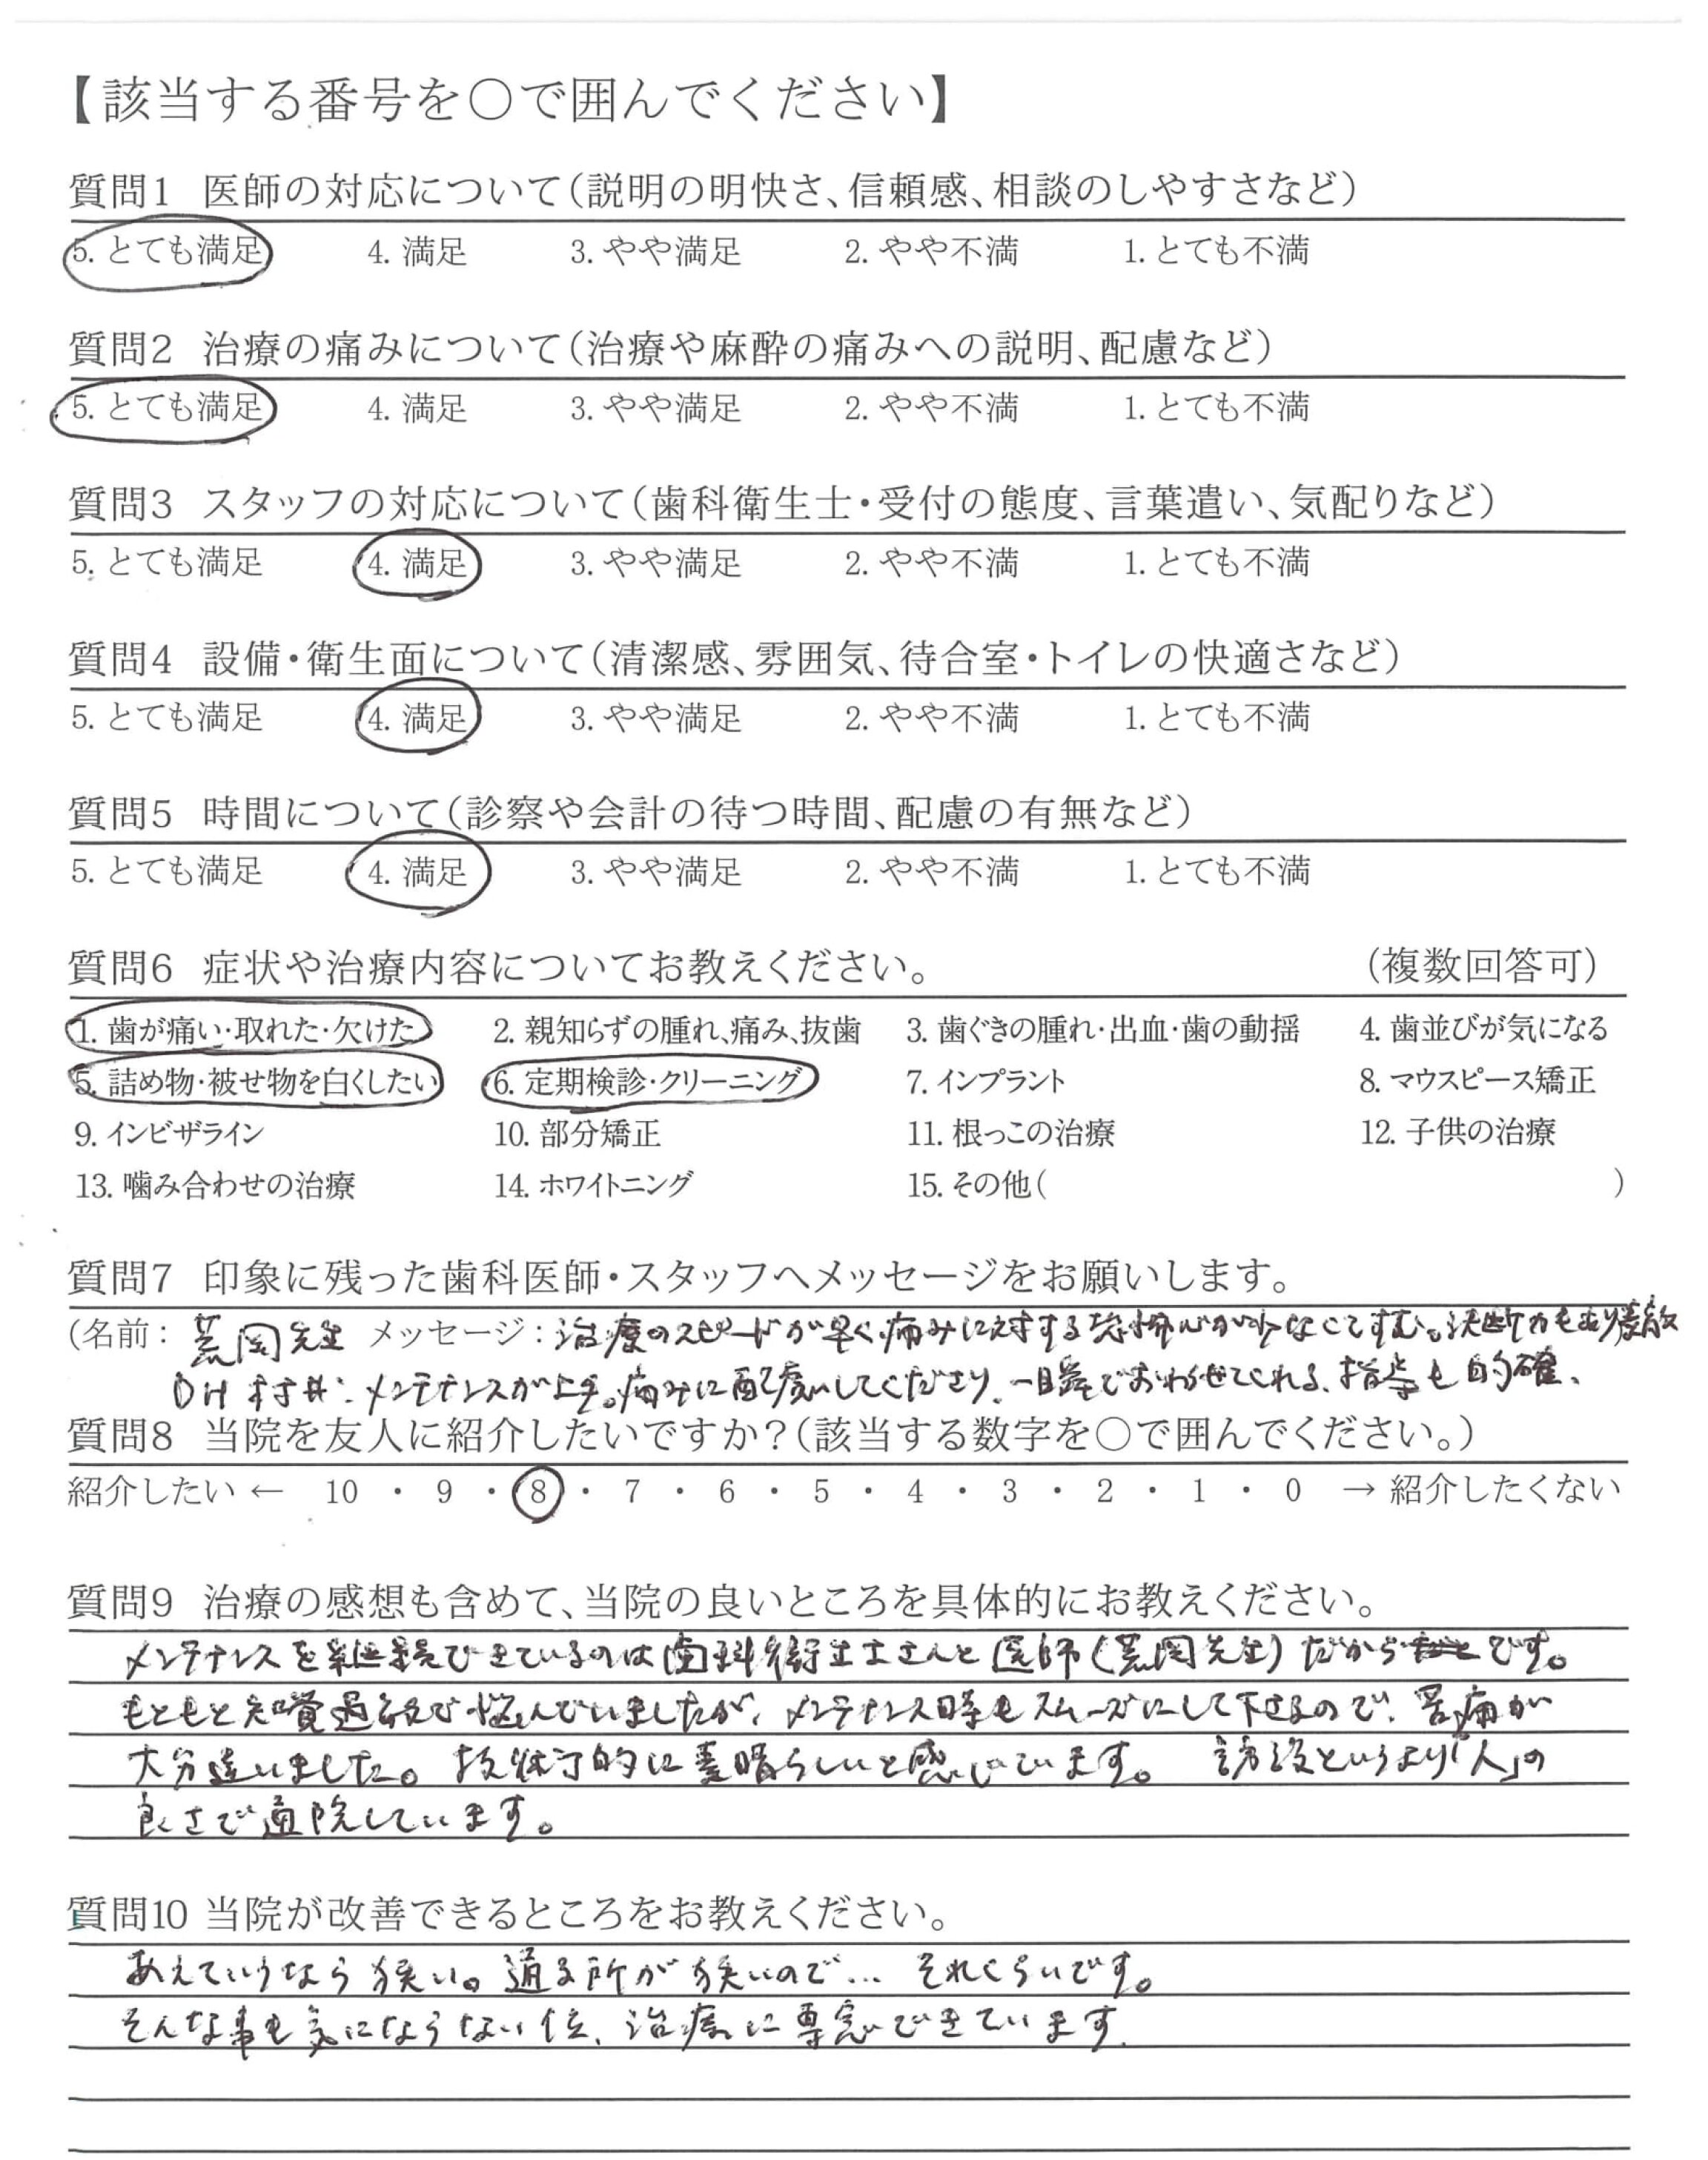 【該当する番号を○で囲んでください】
質問1 医師の対応について(説明の明快さ、信頼感、相談のしやすさなど)
5. とても満足 4. 満足 3. やや満足 2. やや不満 1. とても不満
質問2 治療の痛みについて(治療や麻酔の痛みへの説明、配慮など)
5. とても満足 4. 満足 3. やや満足 2. やや不満 1. とても不満
質問3 スタッフの対応について(歯科衛生士・受付の態度、言葉遣い、気配りなど)
5. とても満足 4. 満足 3. やや満足 2. やや不満 1. とても不満
質問4 設備・衛生面について(清潔感、雰囲気、待合室・トイレの快適さなど)
5. とても満足 4. 満足 3. やや満足 2. やや不満 1. とても不満
質問5 時間について(診察や会計の待つ時間、配慮の有無など)
5. とても満足 4. 満足 3. やや満足 2. やや不満 1. とても不満
質問6 症状や治療内容についてお教えください。 (複数回答可)
1. 歯が痛い・取れた・欠けた 2. 親知らずの腫れ、痛み、抜歯 3. 歯ぐきの腫れ・出血・歯の動揺 4. 歯並びが気になる
5. 詰め物・被せ物を白くしたい 6. 定期検診・クリーニング 7. インプラント 8. マウスピース矯正
9. インビザライン 10. 部分矯正 11. 根っこの治療 12. 子供の治療
13. 噛み合わせの治療 14. ホワイトニング 15. その他( )
質問7 印象に残った歯科医師・スタッフへメッセージをお願いします。
(名前: 荒岡先生 メッセージ: 治療のスピードが早く痛みに対する恐怖心が少なくてすむ。決断力もあり
DH 村井: メンテナンスが上手。痛みに配慮してくださり、一回でおわらせてくれる、指導も的確、
質問8 当院を友人に紹介したいですか?(該当する数字を○で囲んでください。)
紹介したい ← 10 ・ 9 ・ 8 ・ 7 ・ 6 ・ 5 ・ 4 ・ 3 ・ 2 ・ 1 ・ 0 → 紹介したくない
質問9 治療の感想も含めて、当院の良いところを具体的にお教えください。
メンテナンスを継続できているのは歯科衛生士さんと医師(荒岡先生)だからです。
もともと知覚過敏で悩んでいましたが、メンテナンス時もスムーズにして下さるので、苦痛が
大分違いました。技術的に素晴らしいと感じています。 設というより「人」の
良さで通院しています。
質問10 当院が改善できるところをお教えください。
あえていうなら狭い。通る所が狭いので… それくらいです。
そんな事も気にならない位、治療に専念できています.